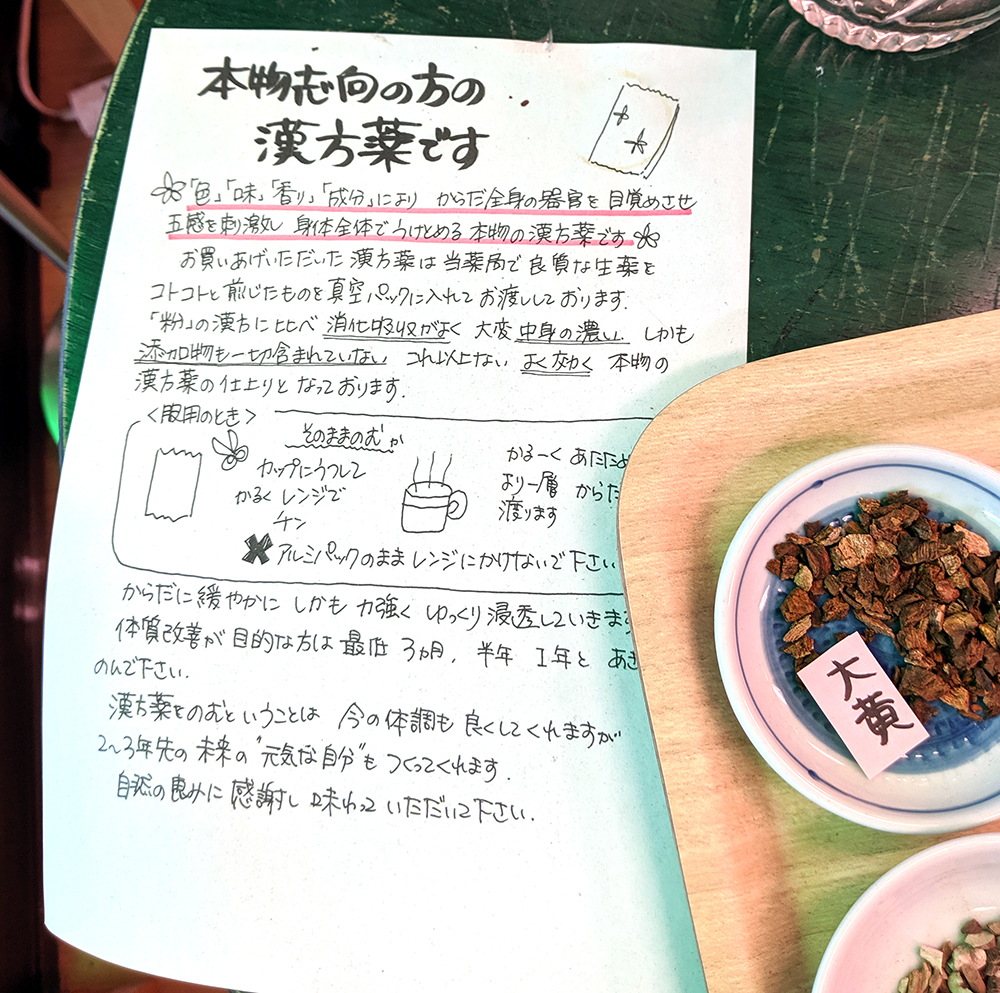 本物志向の方の
漢方薬です
「色」「味」「香り」「成分」により からだ全身の器官を 目覚めさせ
五感を刺激し 身体全体でうけとめる 本物の漢方薬です
お買いあげいただいた 漢方薬は 当薬局で 良質な生薬を
コトコトと 煎じたものを 真空パックに入れて お渡ししております.
「粉」の漢方に比べ 消化吸収がよく 大変 中身の濃い、しかも
添加物も一切含まれていない これ以上ない よく効く 本物の
漢方薬の仕上りと なっております.
<服用のとき>
そのままのむか
カップにうつして
かるく レンジで
チン
かるーく あたため
より一層 からだ
渡ります
✖アルミパックのまま レンジにかけないで下さい
からだに緩やかに しかも 力強く ゆっくり 浸透していきます
体質改善が 目的な方は 最低 3ヵ月、半年 1年と あき
のんで下さい.
漢方薬をのむということは 今の体調も 良くしてくれますが
2〜3年先の 未来の "元気な自分"も つくってくれます.
自然の恵みに 感謝し 味わって いただいて下さい.
大黄